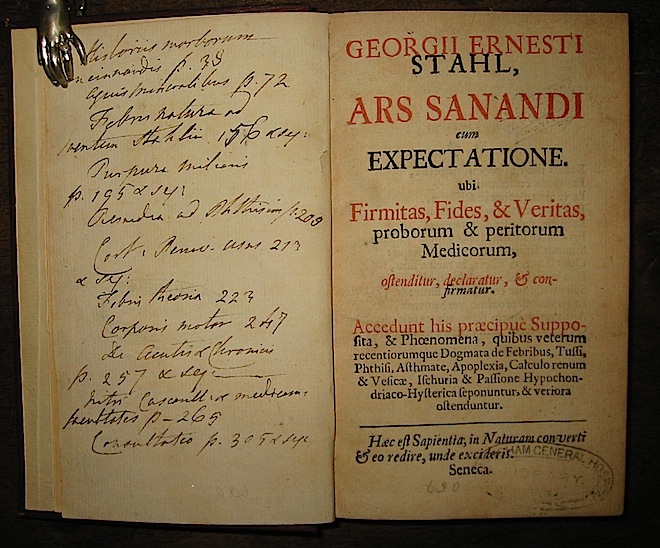 Historiis morborum
p. 38
Aquis mineralibus p. 72
Febris natura ad
mentem Stahlii 156 & sey:
Purpura miliaris
p. 195 & sey:
Remedia ad Phthisim p. 209
Cort: Peruv. usus 213
& sey:
Febris theoria 223
Corporis motor 247
De Acutis & Chronicis
p. 257 & sey:
p - 265
Consultatio p. 305 & sey:
GEORGII ERNESTI
STAHL,
ARS SANANDI
cum
EXPECTATIONE.
ubi
Firmitas, Fides, & Veritas,
proborum & peritorum
Medicorum,
ostenditur, declaratur, & con-
firmatur.
Accedunt his præcipuè Suppo-
sita, & Phœnomena, quibus veterum
recentiorumque Dogmata de Febribus, Tussi,
Phthisi, Asthmate, Apoplexia, Calculo renum
& Vesicæ, Ischuria & Passione Hypochon-
driaco-Hysterica seponuntur, & veriora
ostenduntur.
Hæc est Sapientia, in Naturam converti
& eo redire, unde excideris.
Seneca.
HAM GENERAL HOS